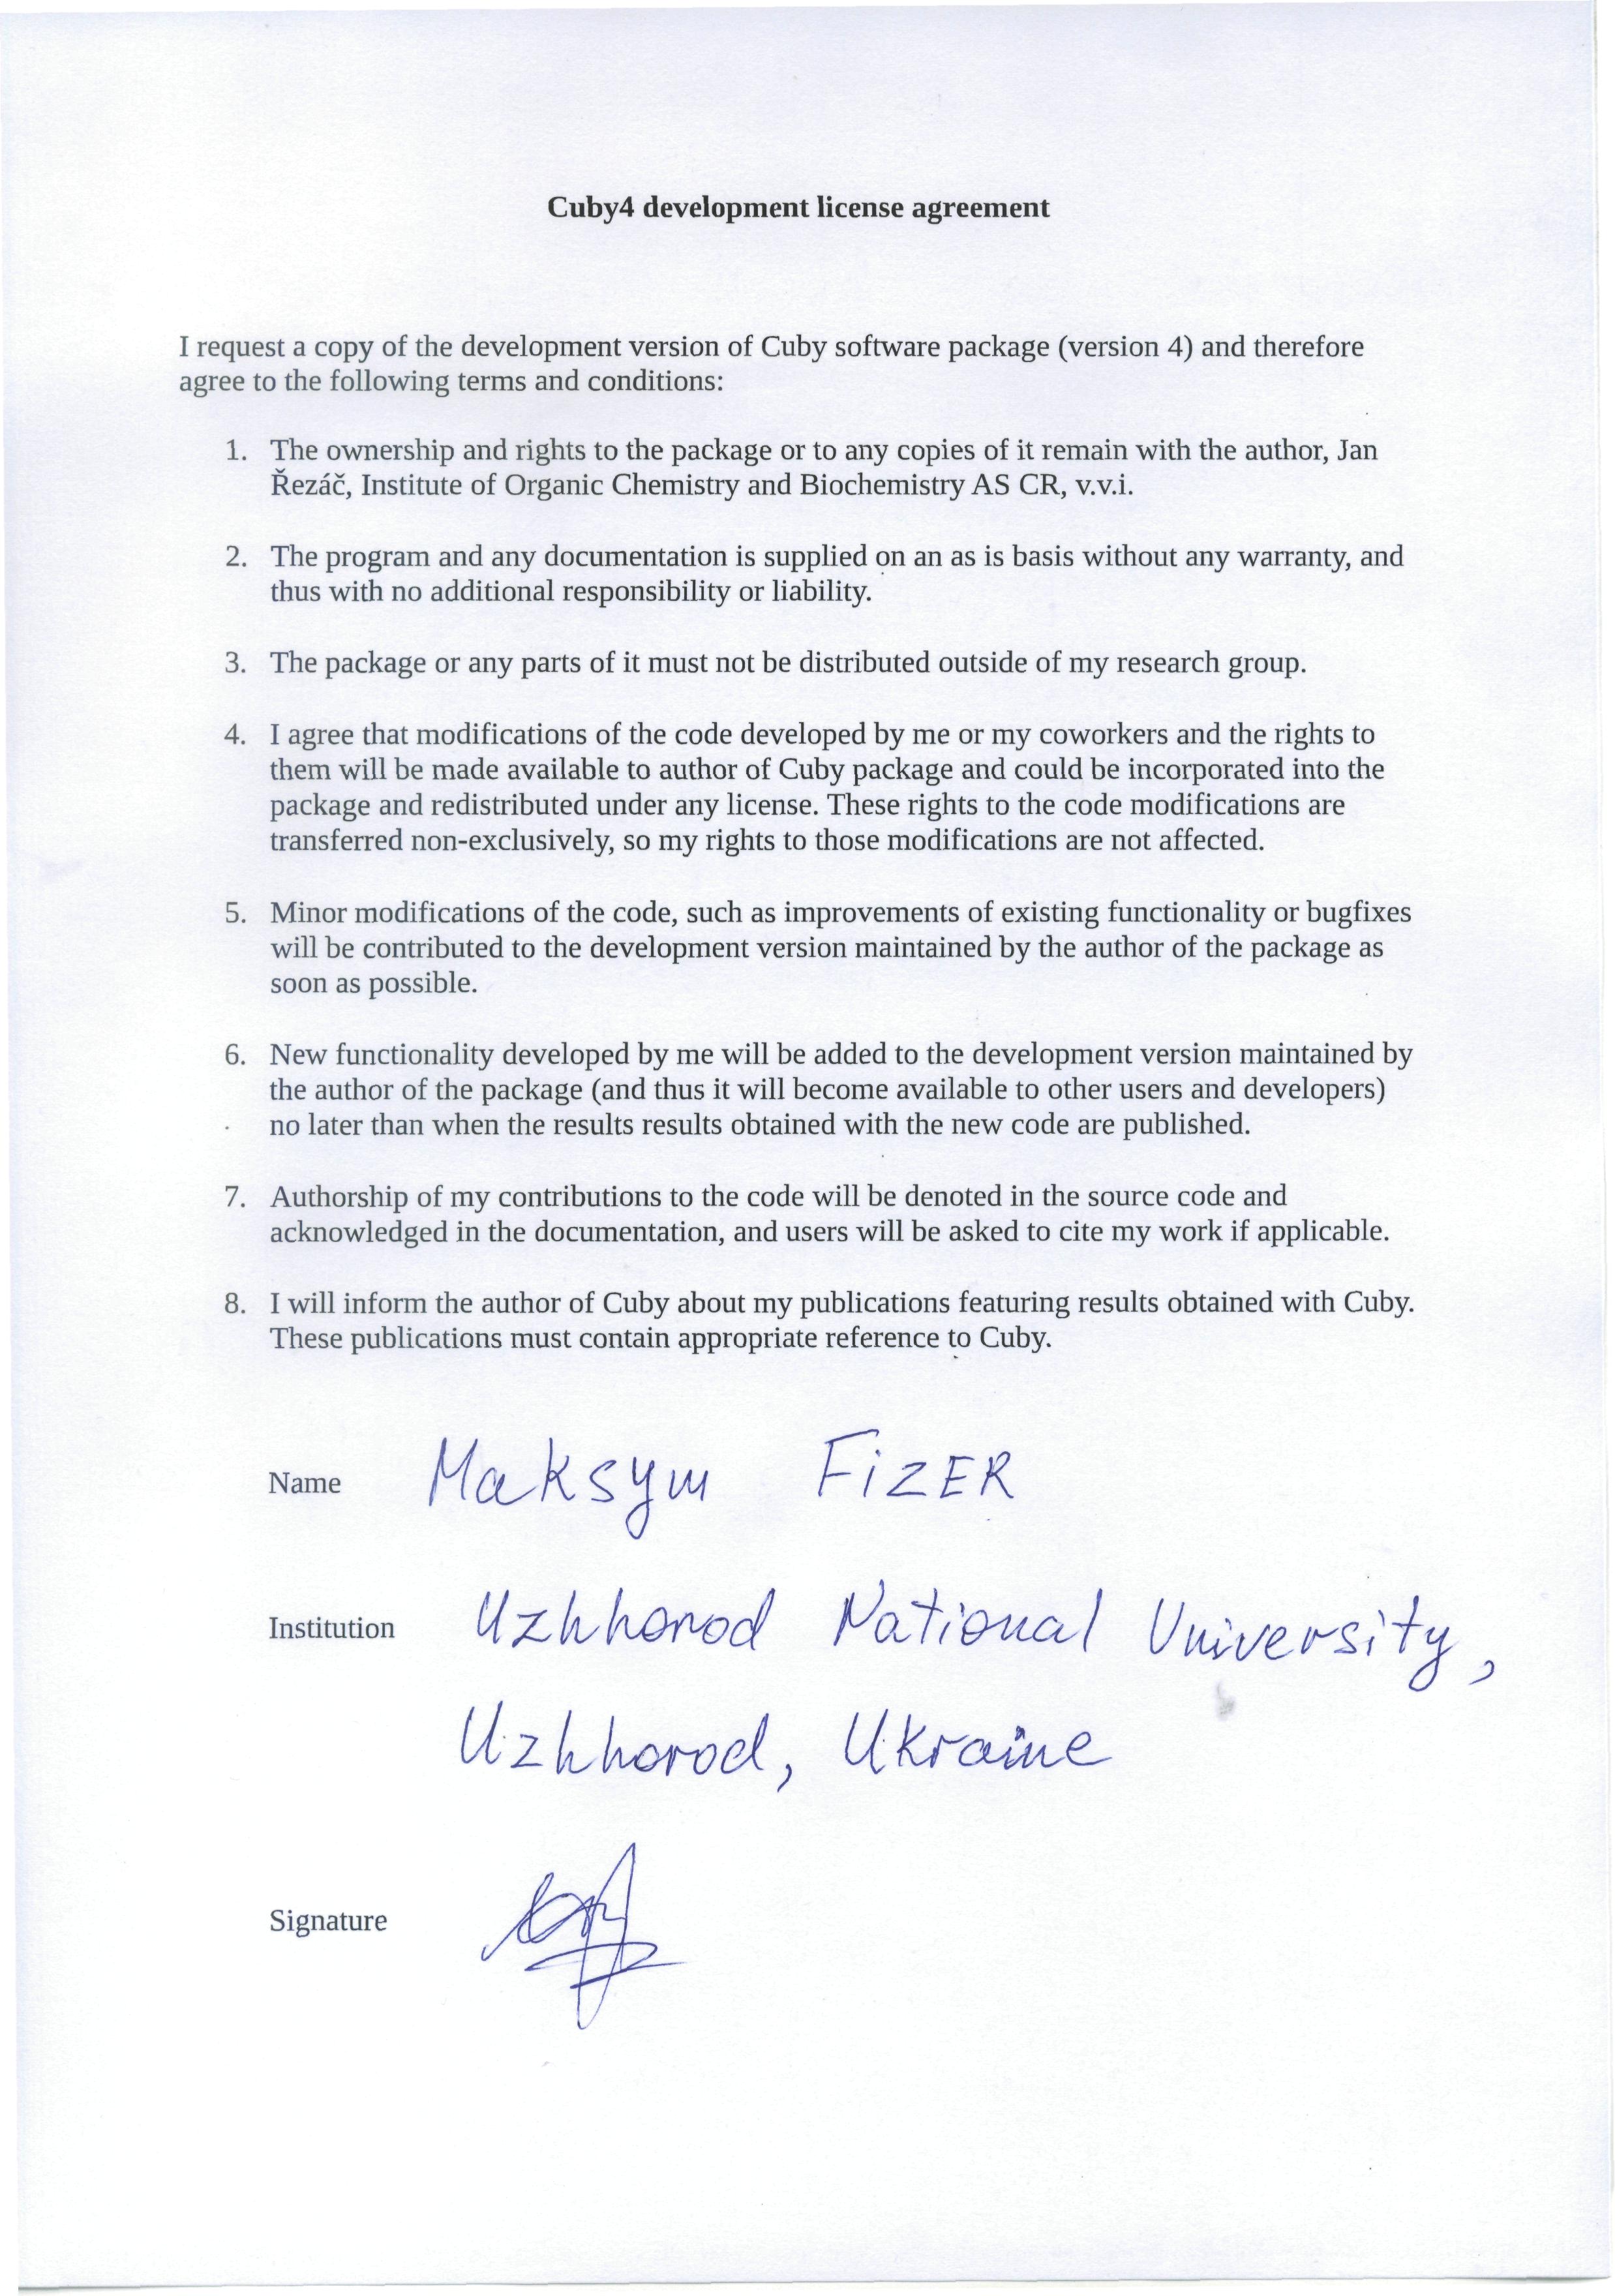 Cuby4 development license agreement
I request a copy of the development version of Cuby software package (version 4) and therefore
agree to the following terms and conditions:
1. The ownership and rights to the package or to any copies of it remain with the author, Jan
Řezáč, Institute of Organic Chemistry and Biochemistry AS CR, v.v.i.
2. The program and any documentation is supplied on an as is basis without any warranty, and
thus with no additional responsibility or liability.
3. The package or any parts of it must not be distributed outside of my research group.
4. I agree that modifications of the code developed by me or my coworkers and the rights to
them will be made available to author of Cuby package and could be incorporated into the
package and redistributed under any license. These rights to the code modifications are
transferred non-exclusively, so my rights to those modifications are not affected.
5. Minor modifications of the code, such as improvements of existing functionality or bugfixes
will be contributed to the development version maintained by the author of the package as
soon as possible.
6. New functionality developed by me will be added to the development version maintained by
the author of the package (and thus it will become available to other users and developers)
no later than when the results results obtained with the new code are published.
7. Authorship of my contributions to the code will be denoted in the source code and
acknowledged in the documentation, and users will be asked to cite my work if applicable.
8. I will inform the author of Cuby about my publications featuring results obtained with Cuby.
These publications must contain appropriate reference to Cuby.
Name Maksym FiZER
Institution Uzhhorod National University,
Uzhhorod, Ukraine
Signature